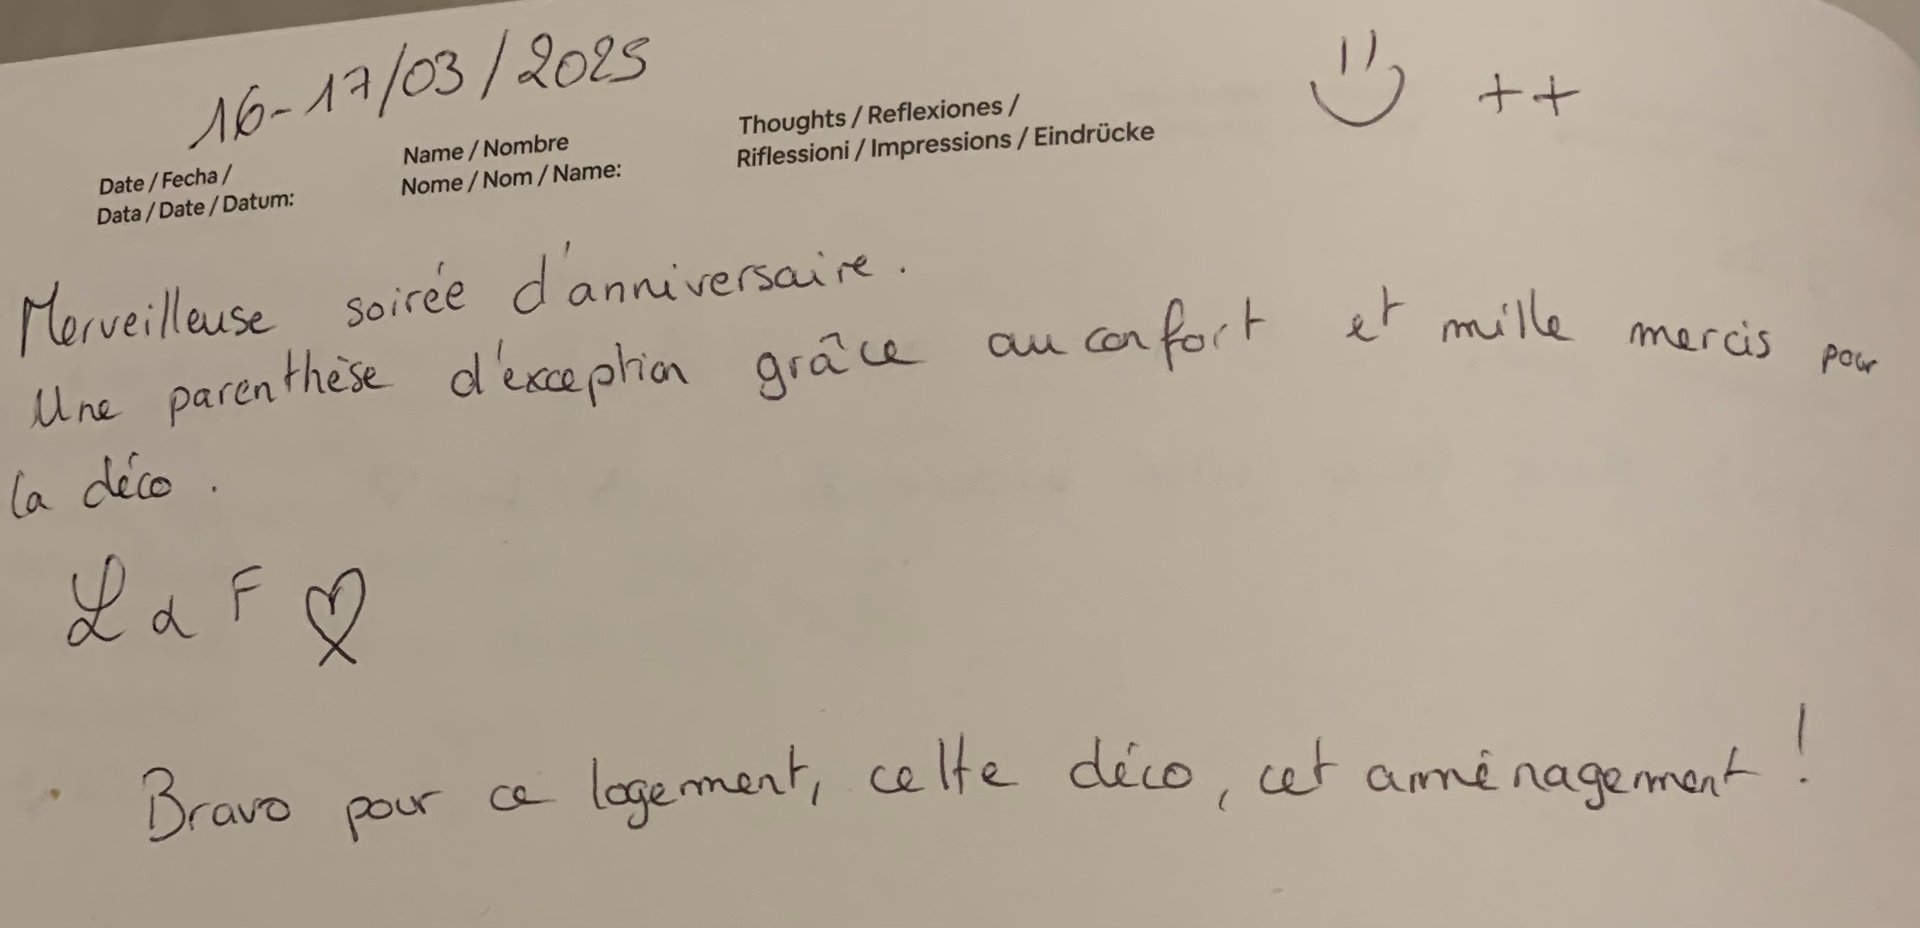 16-17/03/2025
++
Date / Fecha /
Data / Date / Datum:
Name / Nombre
Nome / Nom / Name:
Thoughts / Reflexiones /
Riflessioni / Impressions / Eindrücke
Merveilleuse soirée d'anniversaire.
Une parenthèse d'exception grâce au confort et mille mercis pour
la déco.
L & F ♡
Bravo pour ce logement, cette déco, cet aménagement !